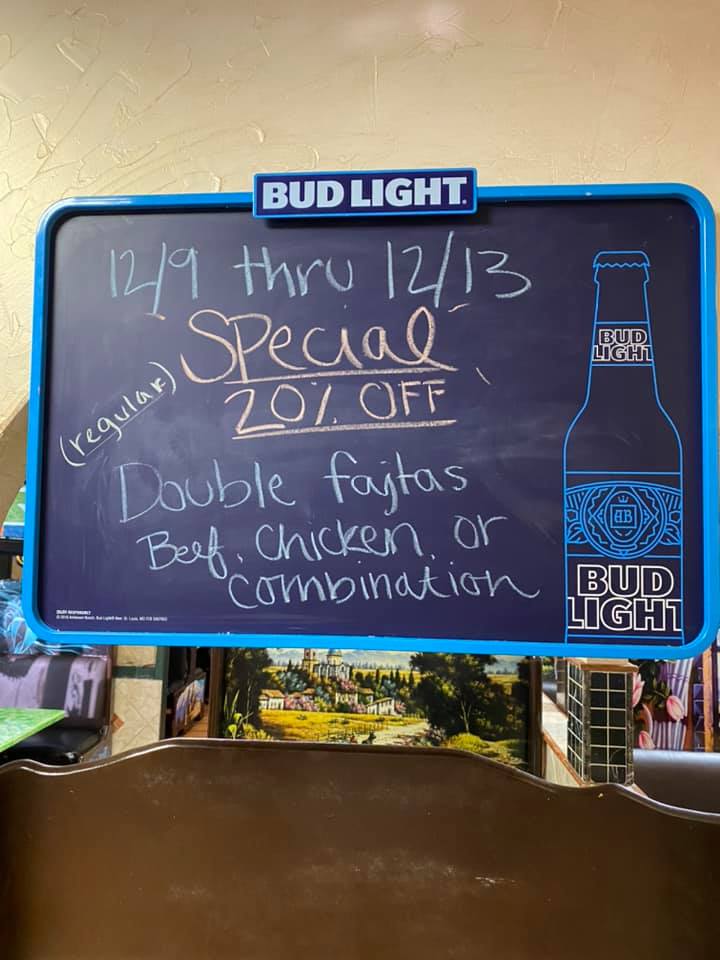 BUD LIGHT
12/9 thru 12/13
Special
20% OFF
(regular)
Double fajtas
Beef, Chicken, or
combination
BUD
LIGHT
AB
BUD
LIGHT
ENJOY RESPONSIBLY